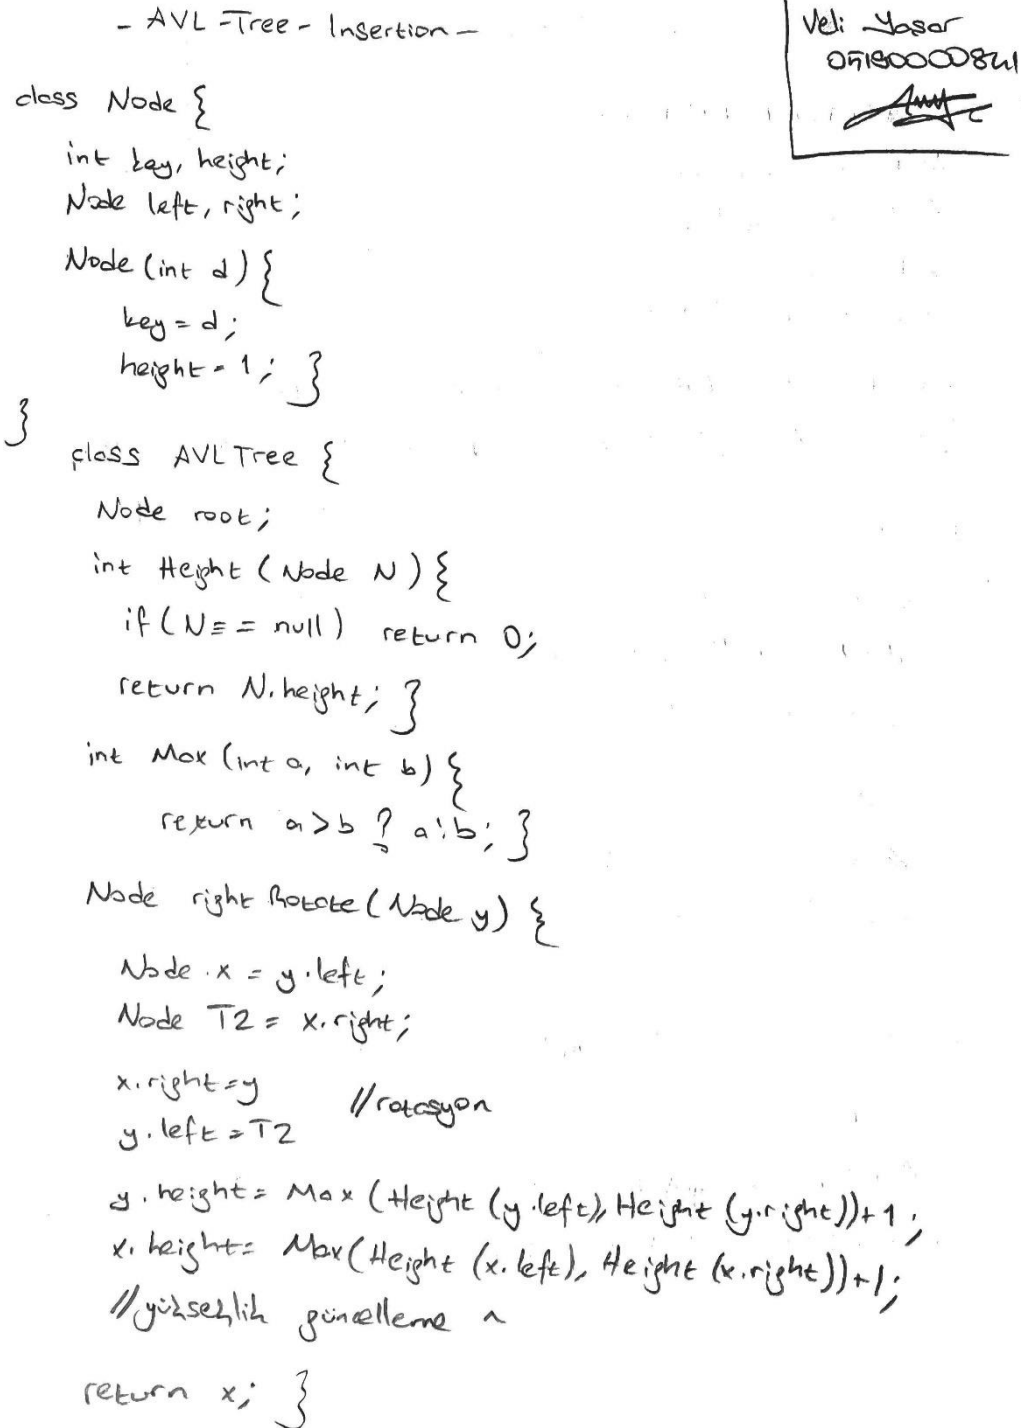 - AVL - Tree - Insertion -
Veli Yaşar
05190000841
class Node {
int key, height;
Node left, right;
Node (int d) {
key = d;
height = 1; }
}
class AVL Tree {
Node root;
int Height (Node N) {
if (N == null) return 0;
return N.height; }
int Max (int a, int b) {
return a > b ? a : b; }
Node right Rotate (Node y) {
Node x = y.left;
Node T2 = x.right;
x.right = y
//rotasyon
y.left = T2
y.height = Max (Height (y.left), Height (y.right)) + 1;
x.height = Max (Height (x.left), Height (x.right)) + 1;
//yükseklik güncelleme ^
return x; }